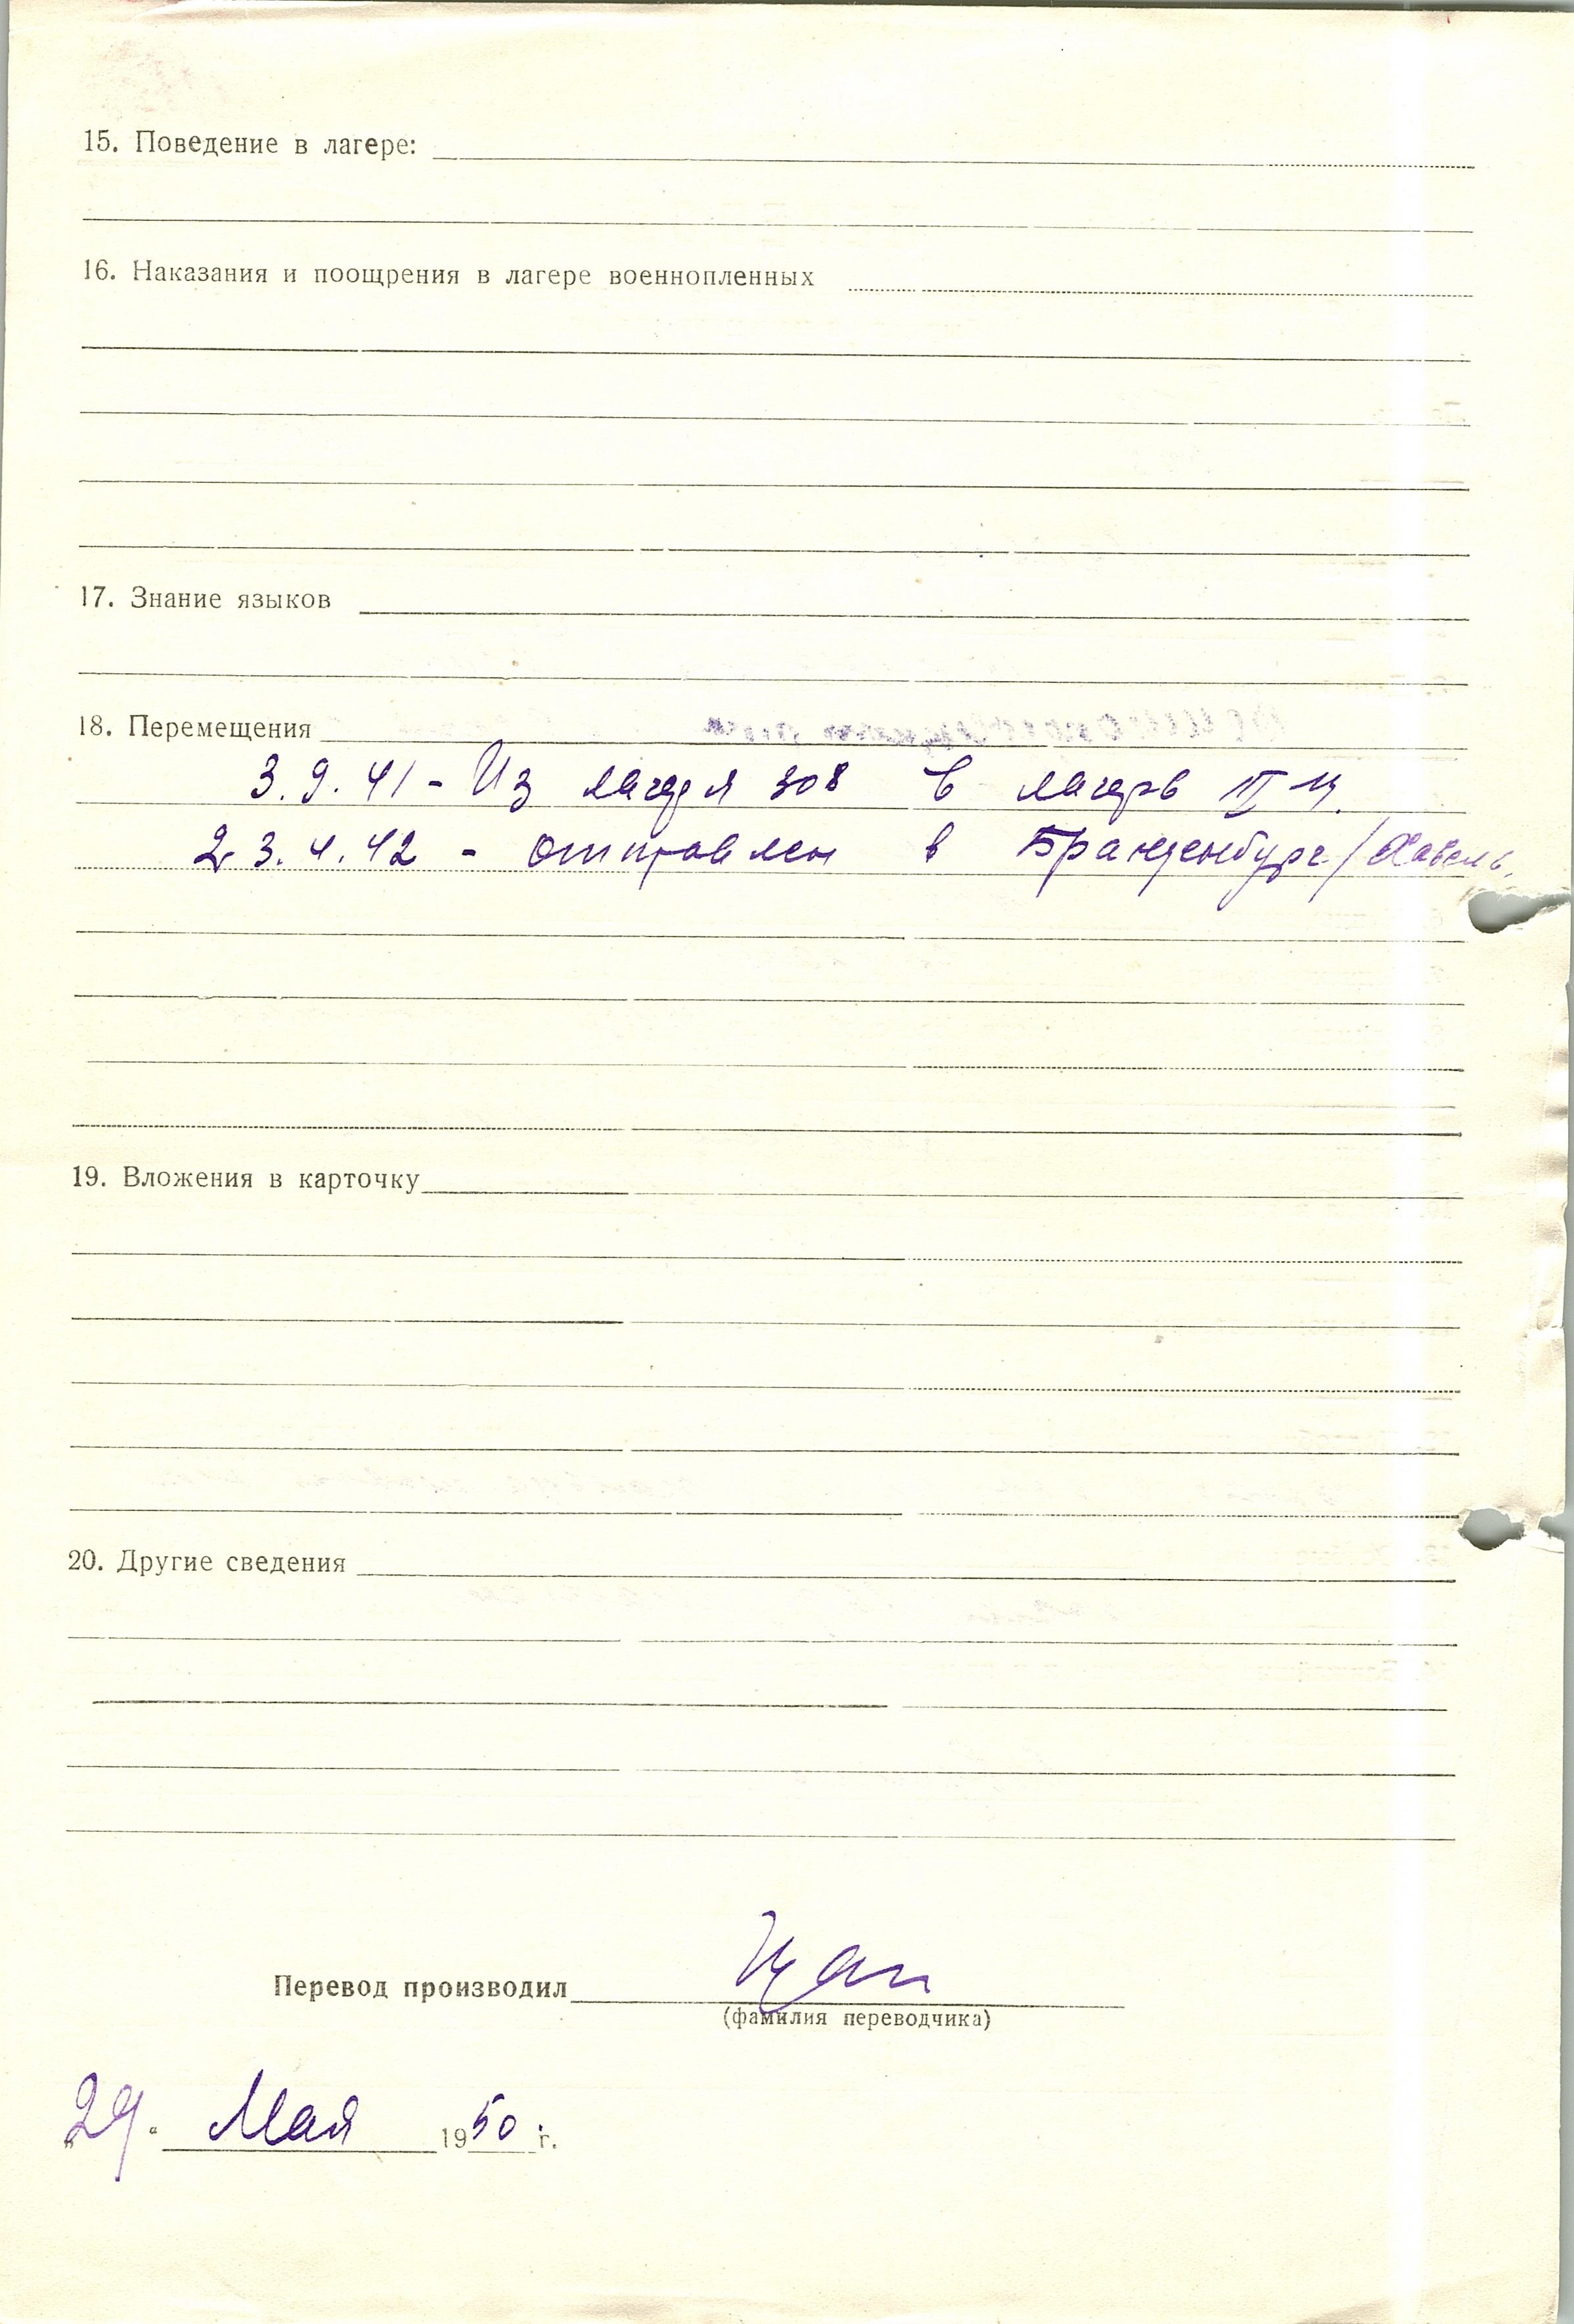 15. Поведение в лагере:
16. Наказания и поощрения в лагере военнопленных
17. Знание языков
18. Перемещения
3.9.41 - Из лагеря 308 в лагерь
23.4.42 - отправлен в Бранденбург/Хавель.
19. Вложения в карточку
20. Другие сведения
Перевод производил
(фамилия переводчика)
„29“ Мая 1950 г.